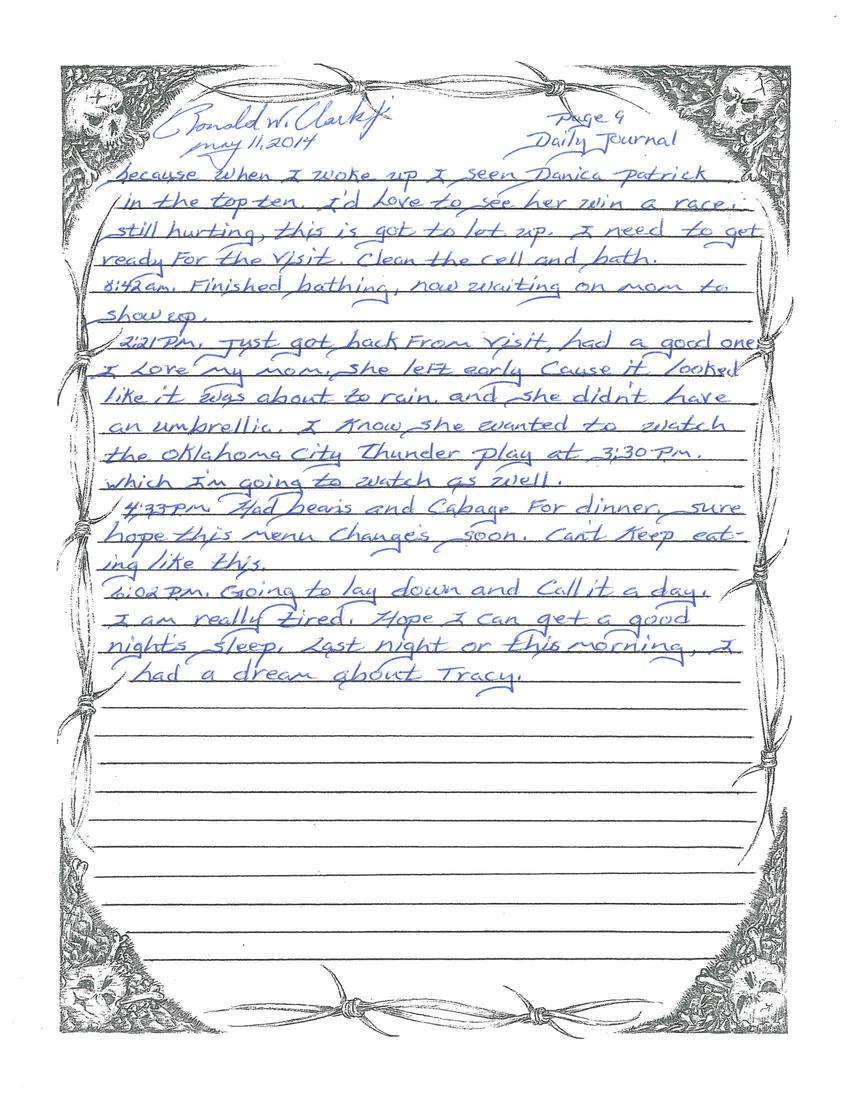 Ronald W. Clark Jr
Page 9
may 11, 2014
Daily Journal
because when I woke up I seen Danica patrick
in the top ten. I'd Love to see her win a race.
still hurting, this is got to let up. I need to get
ready For the Visit. Clean the cell and bath.
8:42 am. Finished bathing, now waiting on mom to
show up.
2:21 P.M. Just got back From Visit, had a good one
I Love my mom. she left early Cause it looked
like it was about to rain. and she didn't have
an umbrellia. I Know she wanted to watch
the Oklahoma City Thunder play at 3:30 P.M.
which I'm going to watch as well.
4:33 P.M. Had beans and Cabage For dinner. sure
hope this menu Change's soon. Can't Keep eat-
ing like this.
6:02 P.M. Going to lay down and Call it a day.
I am really tired. Hope I can get a good
night's sleep. Last night or this morning, I
had a dream about Tracy.